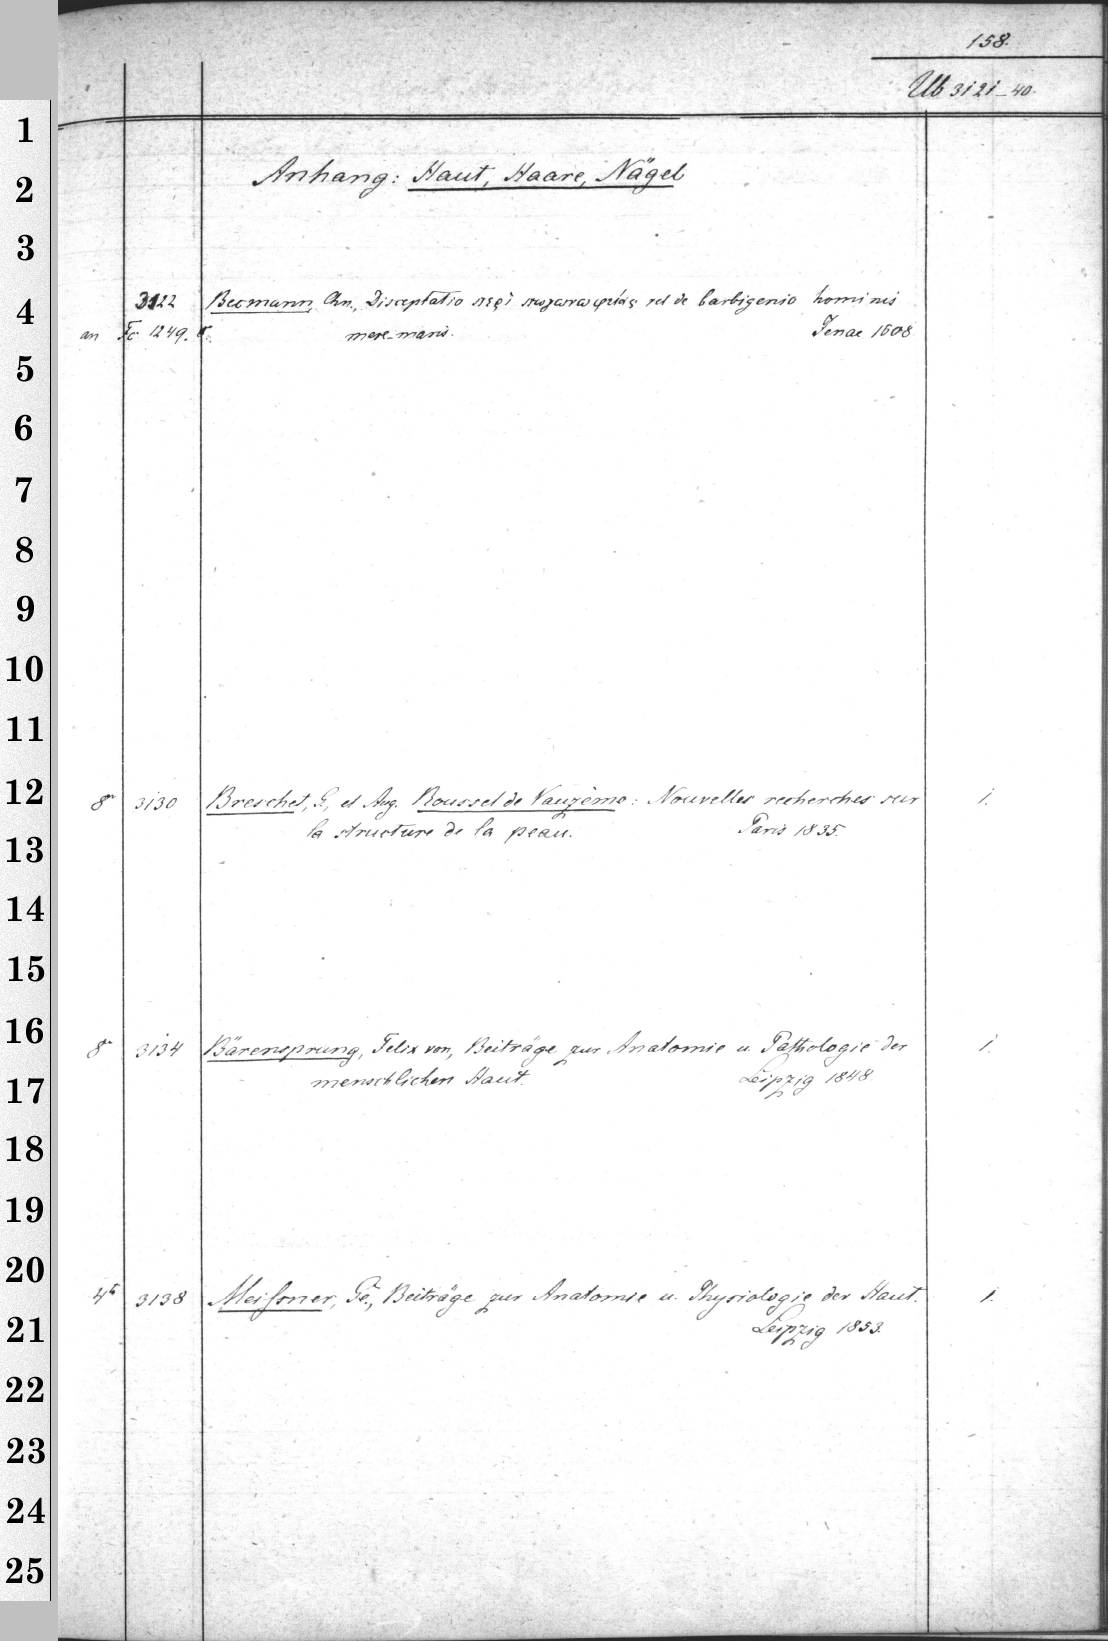 158.
Ub 3121–40.
Anhang: Haut, Haare, Nägel
3122 Becmann, Chn., Disceptatio περὶ vel de barbigenio hominis
an Fc 1249. mere-maris. Jenae 1608
8° 3130 Breschet, G., et Aug. Roussel de Vauzème: Nouvelles recherches sur 1.
la structure de la peau. Paris 1835.
8° 3134 Bärensprung, Felix von, Beiträge zur Anatomie u. Pathologie der 1.
menschlichen Haut. Leipzig 1848
4° 3138 Meißner, Ge., Beiträge zur Anatomie u. Physiologie der Haut. 1.
Leipzig 1853.
1
2
3
4
5
6
7
8
9
10
11
12
13
14
15
16
17
18
19
20
21
22
23
24
25